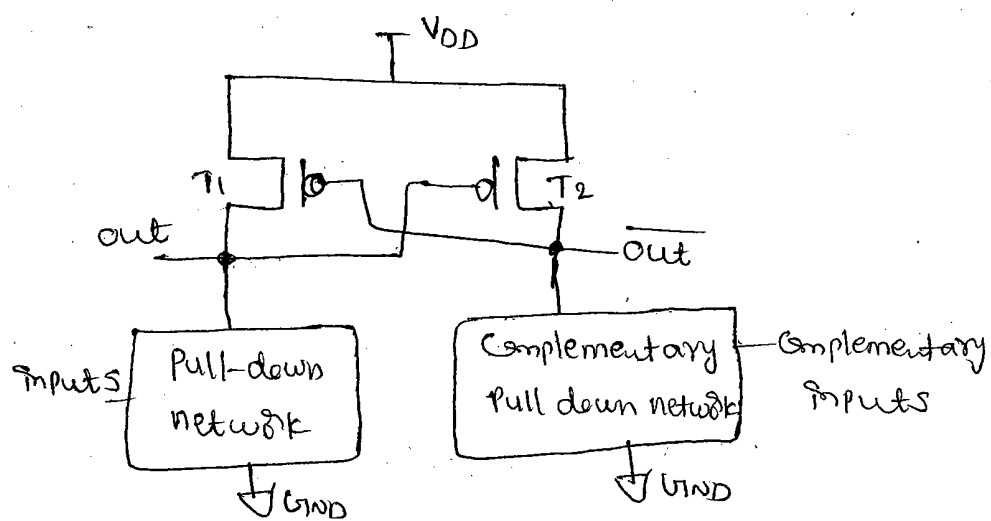 VDD
T1
T2
out
out
inputs
Pull-down
network
Complementary
Pull down network
Complementary
inputs
GND
GND